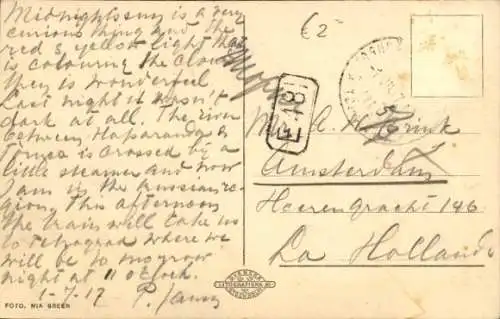 Midnightssun is a very
curious thing and the
red & yellow light that
is colouring the clouds
they is wonderful
Last night it wasn't
dark at all. The river
between Haparanda &
Tornea is crossed by a
little steamer and now
I am in the Russian re-
gion. This afternoon
the train will take us
to Petrograd where we
will be to morrow
night at 11 o'clock.
1-7-17 P.
FOTO. MIA GREEN
£2-
E 481
A.
Amsterdam
Heerengracht 146
La Hollande